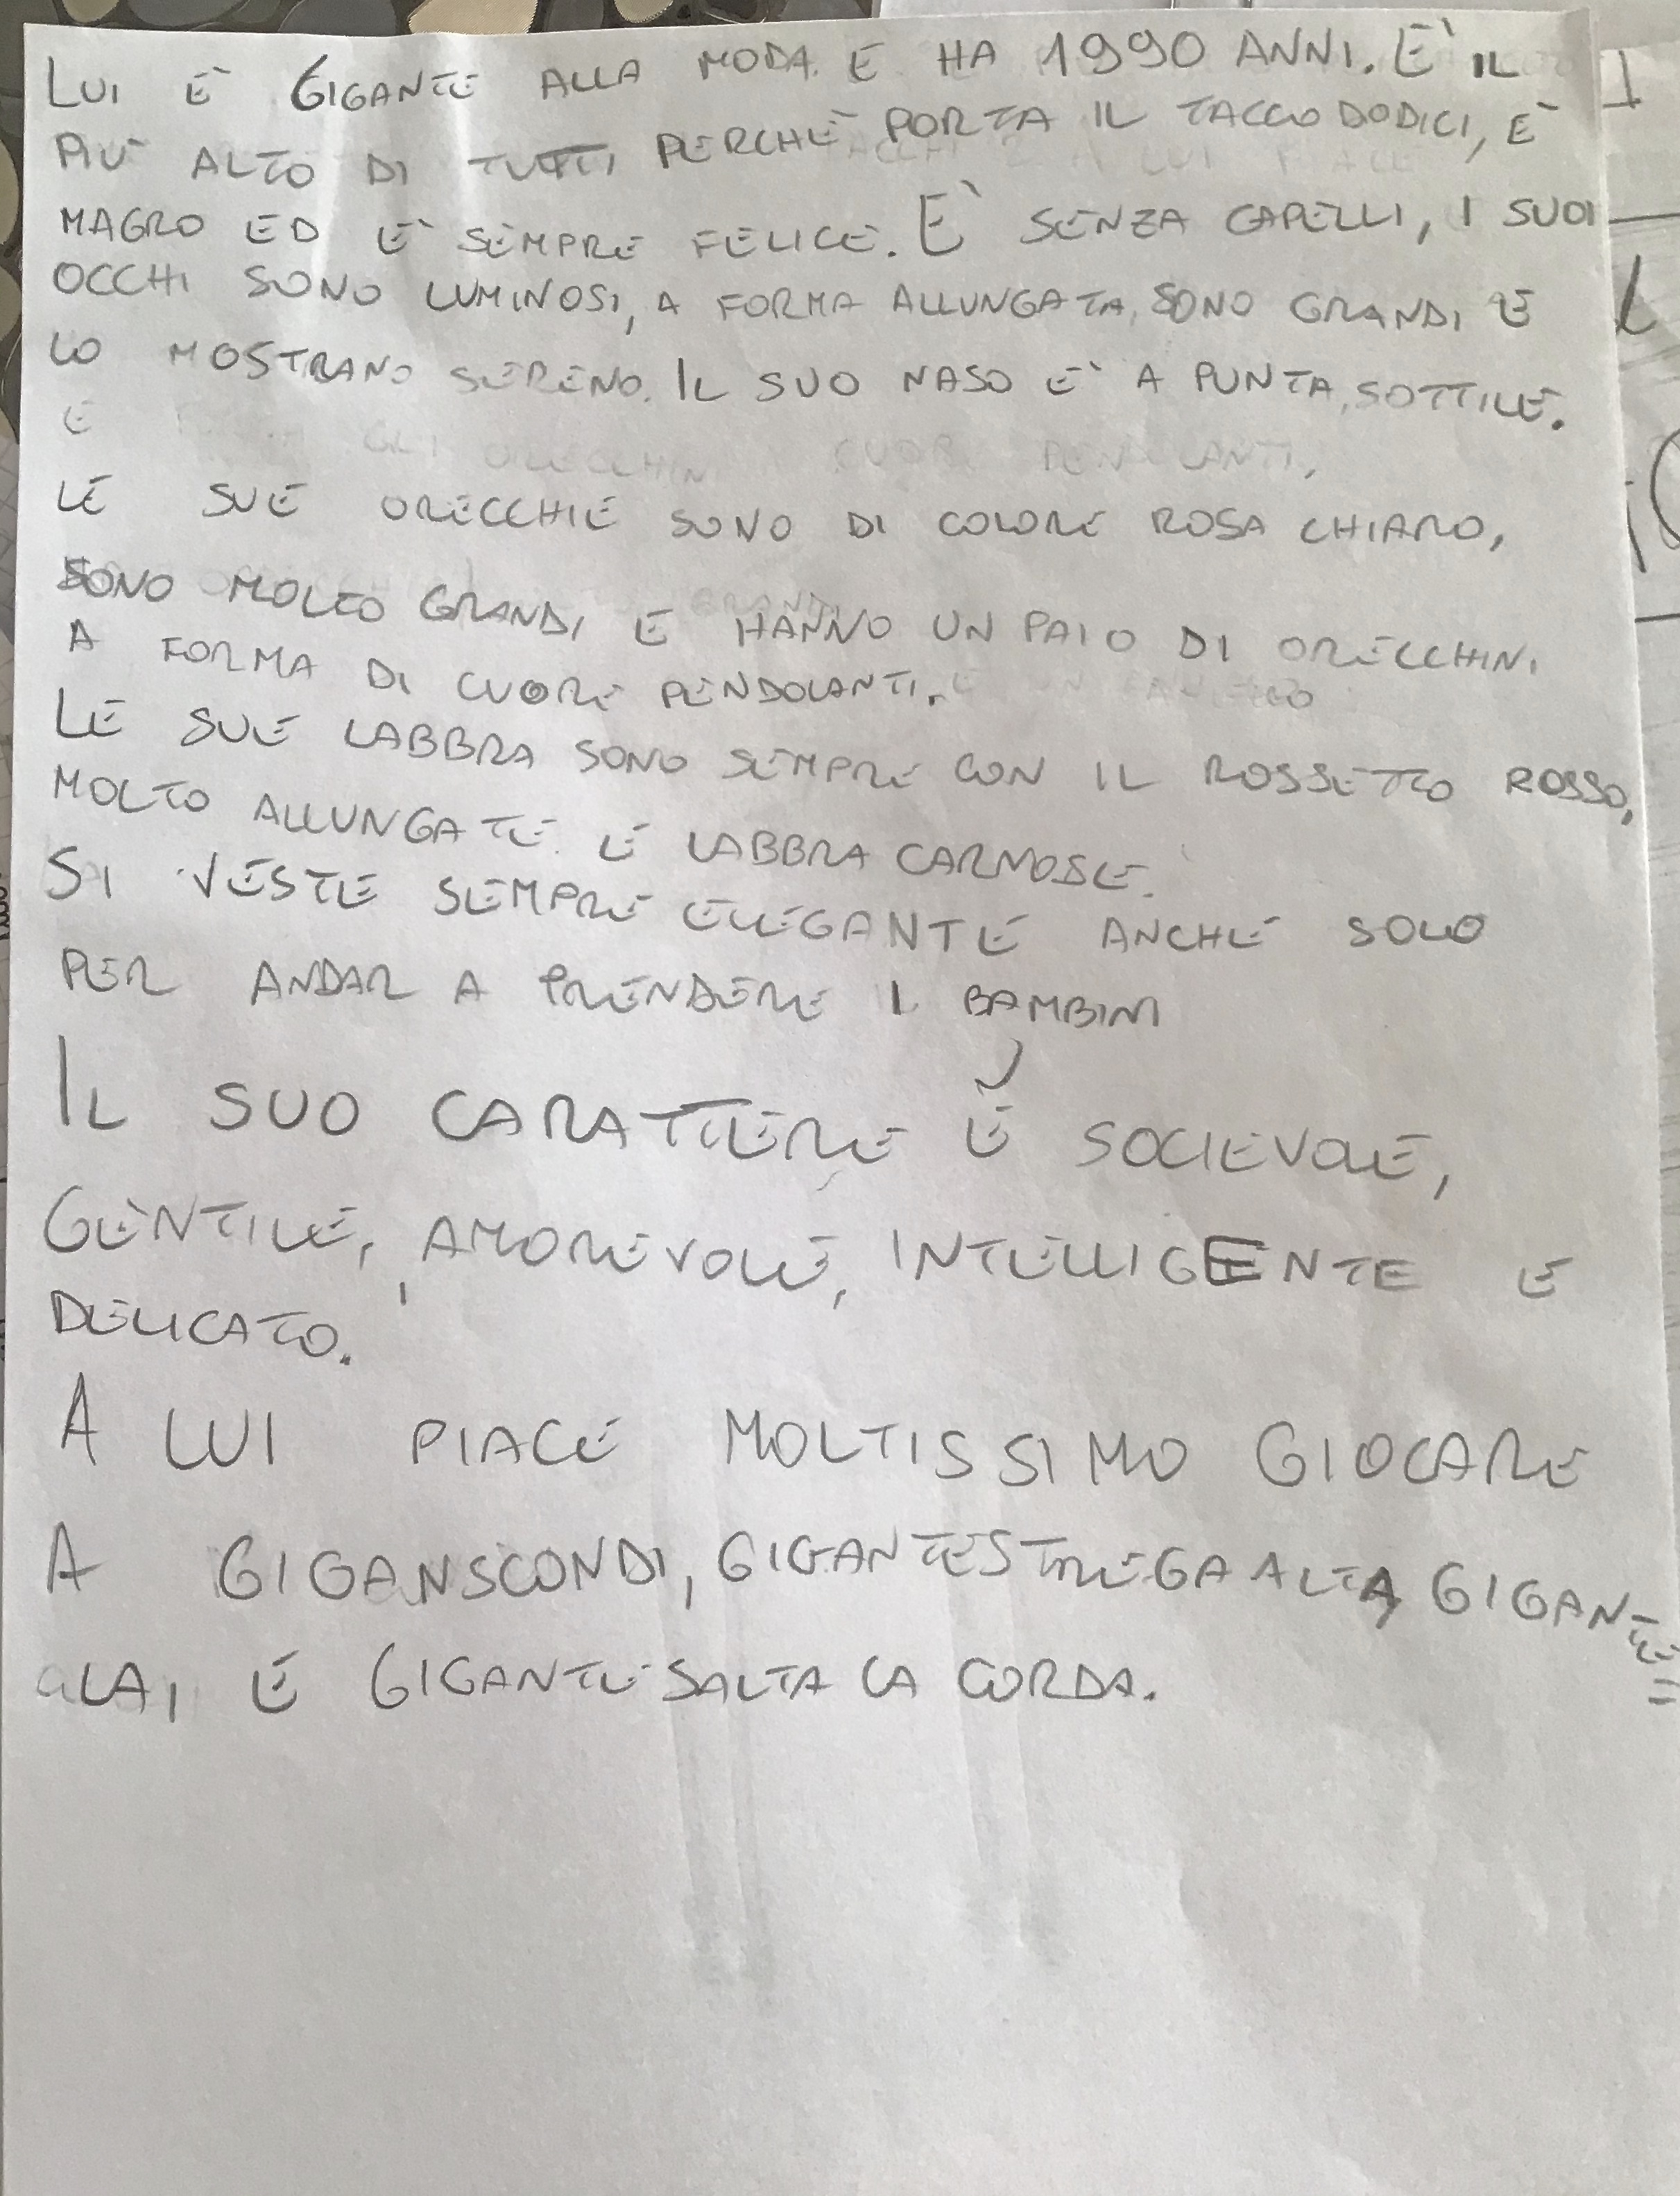 LUI È GIGANTE ALLA MODA E HA 1990 ANNI. È IL
PIÙ ALTO DI TUTTI PERCHÈ PORTA IL TACCO DODICI, È
MAGRO ED È SEMPRE FELICE. È SENZA CAPELLI, I SUOI
OCCHI SONO LUMINOSI, A FORMA ALLUNGATA, SONO GRANDI E
LO MOSTRANO SERENO. IL SUO NASO È A PUNTA, SOTTILE.
E GLI ORECCHINI CUORE PENDOLANTI,
LE SUE ORECCHIE SONO DI COLORE ROSA CHIARO,
SONO MOLTO GRANDI E HANNO UN PAIO DI ORECCHINI
A FORMA DI CUORE PENDOLANTI.
LE SUE LABBRA SONO SEMPRE CON IL ROSSETTO ROSSO,
MOLTO ALLUNGATE E LABBRA CARNOSE.
SI VESTE SEMPRE ELEGANTE ANCHE SOLO
PER ANDAR A PRENDERE I BAMBINI
IL SUO CARATTERE È SOCIEVOLE,
GENTILE, AMOREVOLE, INTELLIGENTE E
DELICATO.
A LUI PIACE MOLTISSIMO GIOCARE
A GIGANSCONDI, GIGANTESTREGA ALTA, GIGANTE=
ALA, E GIGANTE SALTA LA CORDA.